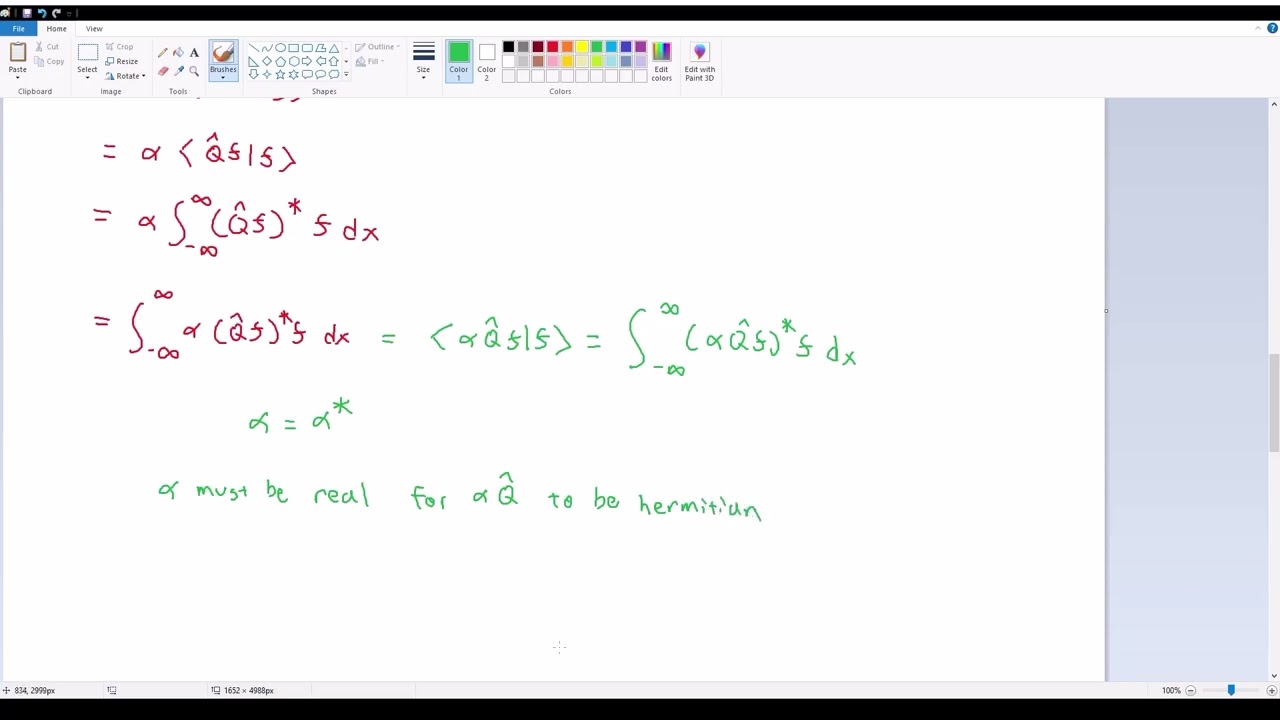 File Home View
Paste Cut Copy Clipboard
Select Crop Resize Rotate Image
Tools
Brushes
Shapes Outline Fill
Size
Color 1 Color 2 Edit colors Colors
Edit with Paint 3D
= α ⟨Q̂f|f⟩
= α ∫_{-∞}^{∞} (Q̂f)* f dx
= ∫_{-∞}^{∞} α (Q̂f)* f dx = ⟨αQ̂f|f⟩ = ∫_{-∞}^{∞} (αQ̂f)* f dx
α = α*
α must be real for αQ̂ to be hermitian
834, 2999px 1652 × 4988px 100%